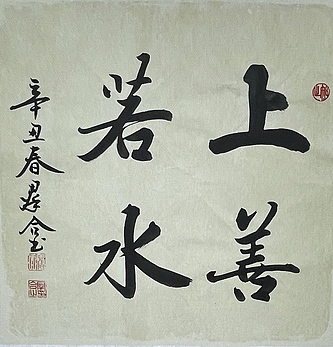 上善
若水
辛丑春